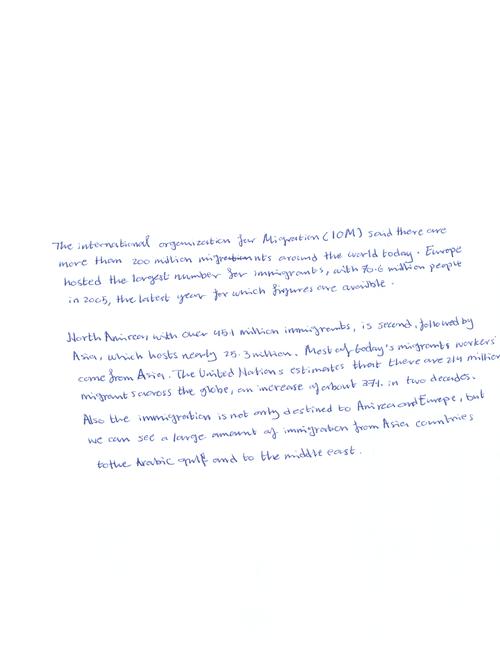 The international organization for Migration (IOM) said there are
more than 200 million migrants around the world today. Europe
hosted the largest number for immigrants, with 70.6 million people
in 2005, the latest year for which figures are availble.
North Amirca, with over 45.1 million immigrants, is second, followed by
Asia, which hosts nearly 25.3 million. Most of today's migrants workers
come from Asia. The United Nations estimates that there are 214 million
migrants across the globe, an increase of about 37%. in two decades.
Also the immigration is not only destined to Amirca and Europe, but
we can see a large amount of immigration from Asia countries
to the Arabic gulf and to the middle east.